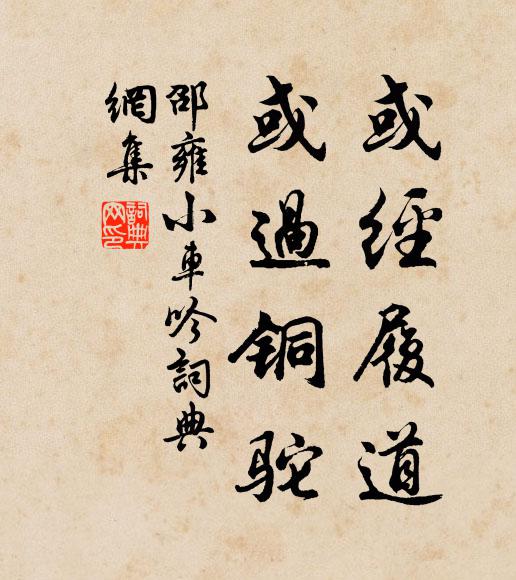 或經履道
或過铜驼
邵雍小車吟詞典
網集
詞典網印